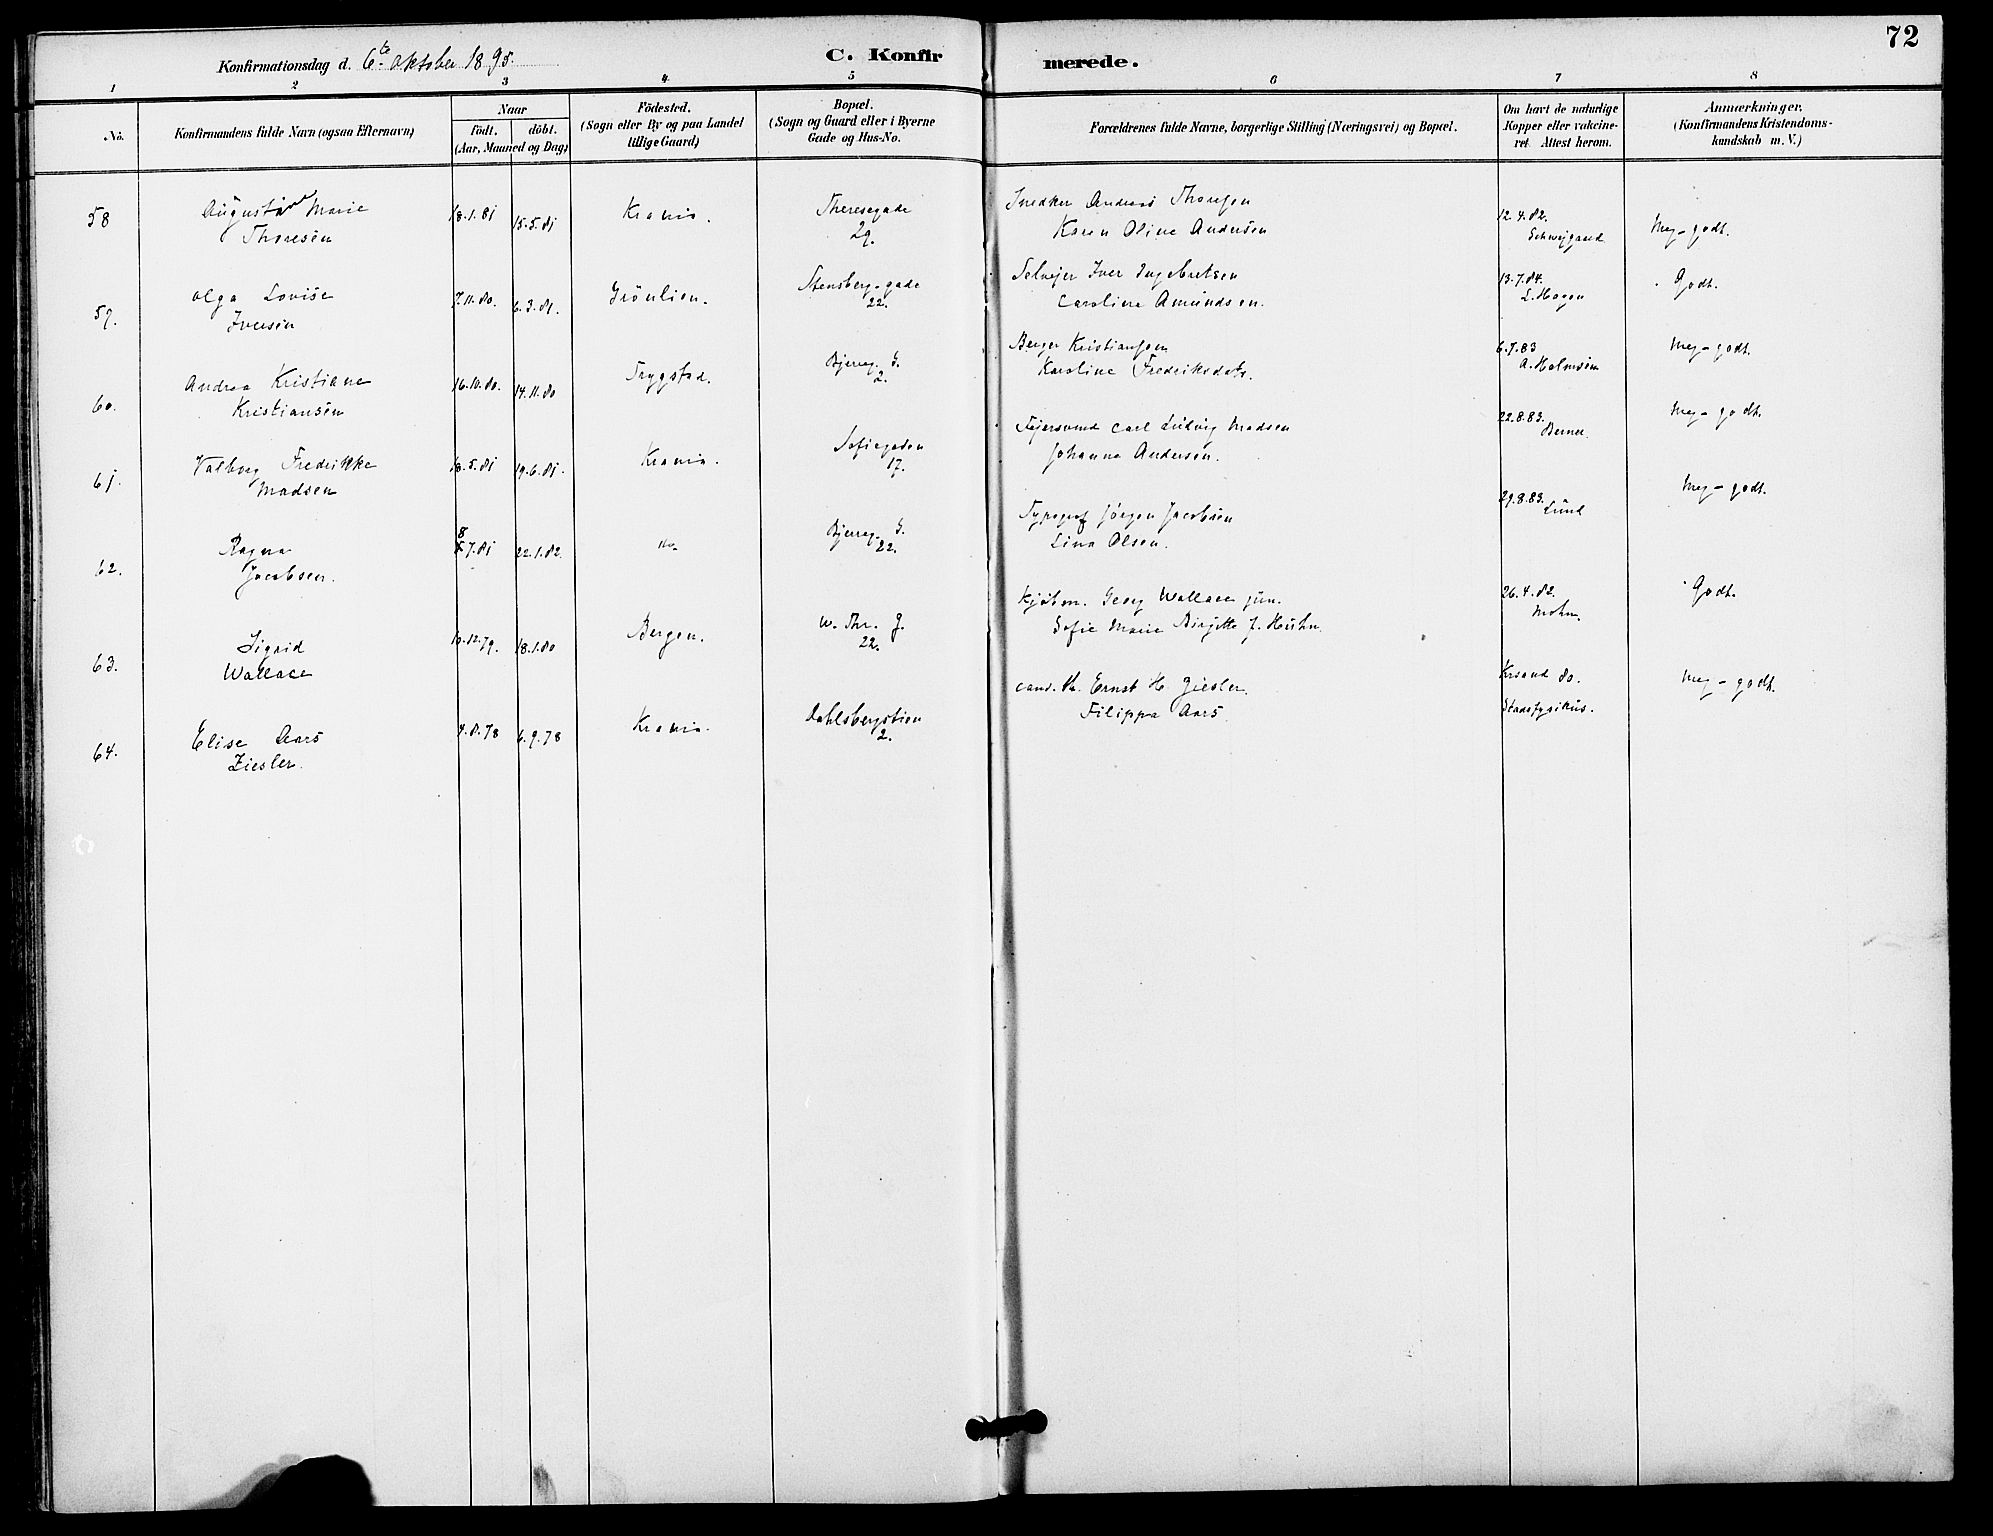 72
Konfirmationsdag d. 6te Oktober 1895.
C. Konfirmerede.
1 2 3 4 5 6 7 8
No.
Konfirmandens fulde Navn (ogsaa Efternavn)
Naar
födt. döbt.
(Aar, Maaned og Dag)
Födested.
(Sogn eller By og paa Landet
tillige Gaard)
Bopæl.
(Sogn og Gaard eller i Byerne
Gade og Hus-No.
Forældrenes fulde Navne, borgerlige Stilling (Næringsvei) og Bopæl.
Om havt de naturlige
Kopper eller vakcine-
ret. Attest herom.
Anmærkninger.
(Konfirmandens Kristendoms-
kundskab m. V.)
58 Augusta Marie 18.1.81 15.5.81 Krania. Theresegade Snedker Andreas Thoresen 12.4.82. Meg-godt.
Thoresen 29. Karen Oline Andersen Schweigaard
59. Olga Lovise 7.11.80. 6.3.81. Grönlien. Stensberg-gade Selvejer Iver Ingebretsen 13.7.84. Godt.
Iversen 22. Caroline Amundsen. L. Hagen
60. Andrea Kristiane 16.10.80. 14.11.80 Trygstad. Bjerreg. G. Berger Kristiansen 6.7.83 Meg-godt.
Kristiansen 2. Karoline Fredriksdatr. A. Holmsen
61. Valborg Fredrikke 18.5.81 19.6.81. Krania. Sofiegaden Fejersvend Carl Ludvig Madsen 22.8.83. Meg-godt.
Madsen 17. Johanna Andersen. Berner.
62. Ragna 8.7.81 22.1.82. do. Bjerreg. G. Typograf Jörgen Jacobsen 29.8.83. Meg-godt.
Jacobsen. 22. Lina Olsen. Lund
63. Sigrid 10.12.79. 18.1.80 Bergen. W. Thr. G. Kjöbm. Georg Wallace jun. 26.4.82. Godt.
Wallace 22. Sofie Marie Birgitte J. Huhn. Mohn.
64. Elise Aars 4.8.78 6.9.78 Krania. Dahlsbergstien cand. th. Ernst H. Ziesler. Krsand 80. Meg-godt.
Ziesler. 2. Filippa Aars. Stadsfysikus.